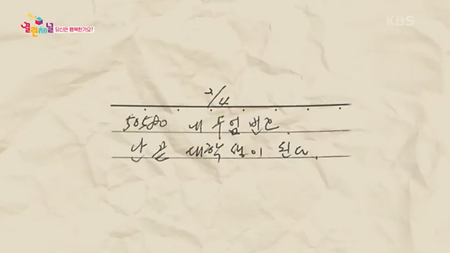 열린채널 당신은 행복한가요?
KBS
2/4
50580 내 수험 번호
난 곧 대학생이 된다.